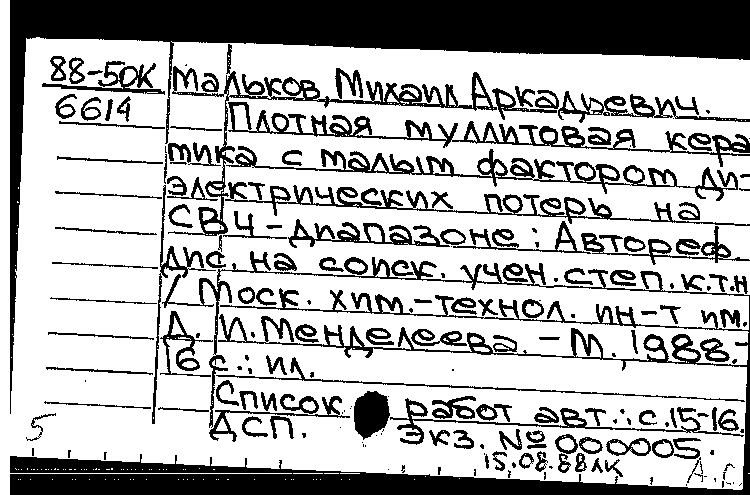 88-50К Мальков, Михаил Аркадьевич.
6614 Плотная муллитовая кера
мика с малым фактором ди-
электрических потерь на
СВЧ-диапазоне : Автореф.
дис. на соиск. учен. степ. к.т.н
/ Моск. хим.-технол. ин-т им.
Д. И. Менделеева. – М., 1988.-
16 с. : ил.
Список работ авт.: с.15-16.
ДСП. Экз. № 000005.
5 15.08.88ЛК